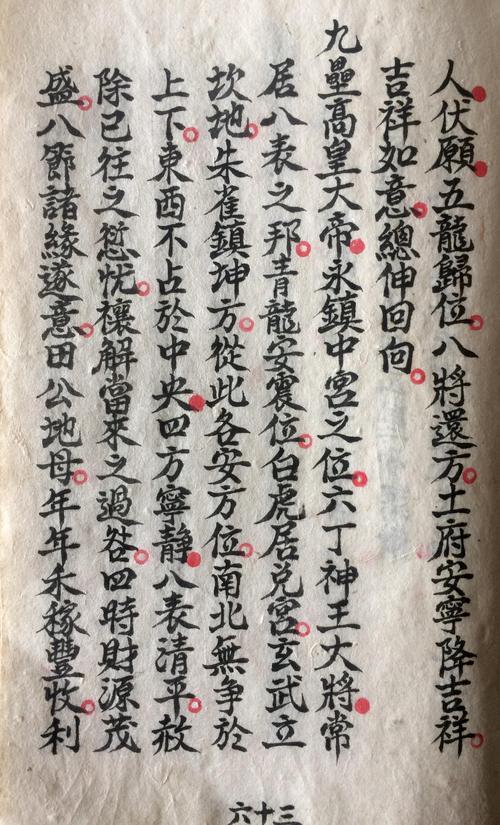 人伏願五龍歸位八將還方土府安寧降吉祥
吉祥如意總伸回向
九壘高皇大帝永鎮中宮之位六丁神王大將常
居八表之邦青龍安震位白虎居兌宮玄武立
坎地朱雀鎮坤方從此各安方位南北無争於
上下東西不占於中央四方寧静八表清平赦
除已往之愆忧禳解當來之過咎四時財源茂
盛八節諸緣遂意田公地母年年禾稼豐收利
六十三